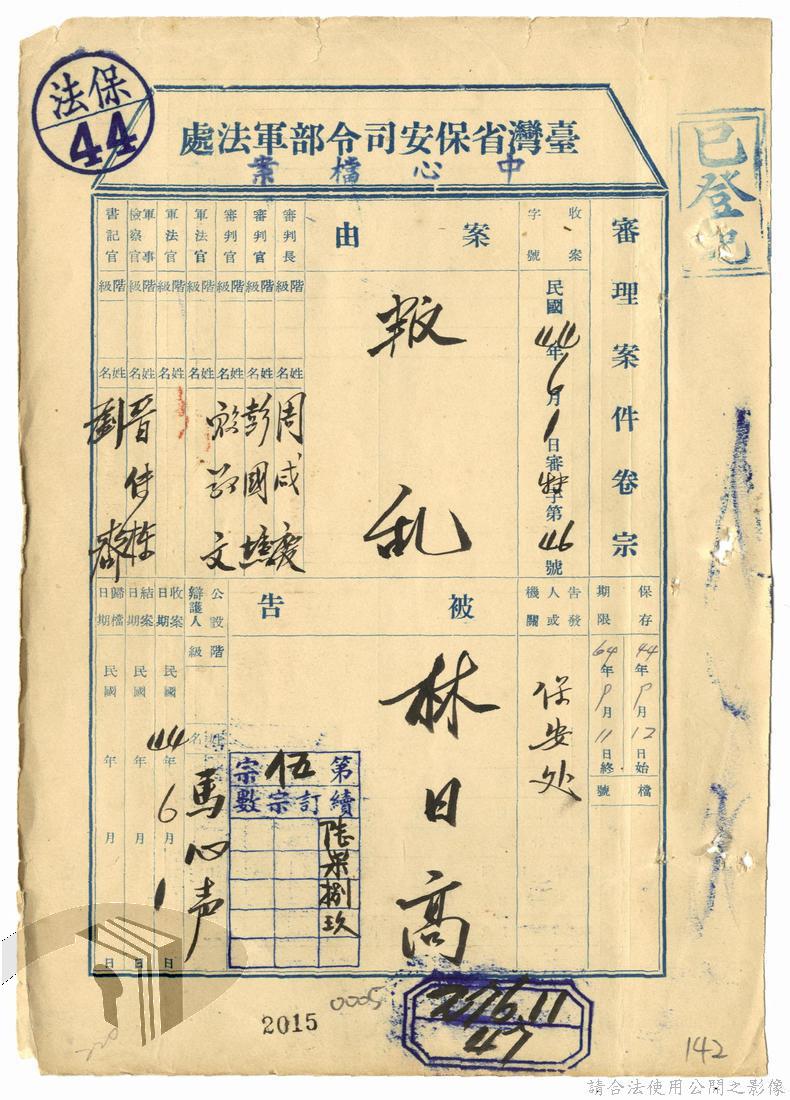 保法
44
臺灣省保安司令部軍法處
中心檔案
已登記
審理案件卷宗
收案字號
民國44年6月1日審特字第46號
案由
叛乱
審判長 階級 姓名 周咸慶
審判官 階級 姓名 彭國壎
審判官 階級 姓名 文
軍法官 階級 姓名
軍法官 階級 姓名
軍事檢察官 階級 姓名
書記官 階級 姓名
保存期限
44年9月12日始
64年9月11日終
檔號
告發人或機關
保安处
被告
林日高
公設辯護人 階級 姓名 馬心声
收案日期 民國44年6月1日
結案日期 民國 年 月 日
歸檔日期 民國 年 月 日
第伍宗
續訂宗數
陸
柒
捌
玖
276.11
47
2015
0005
142
請合法使用公開之影像